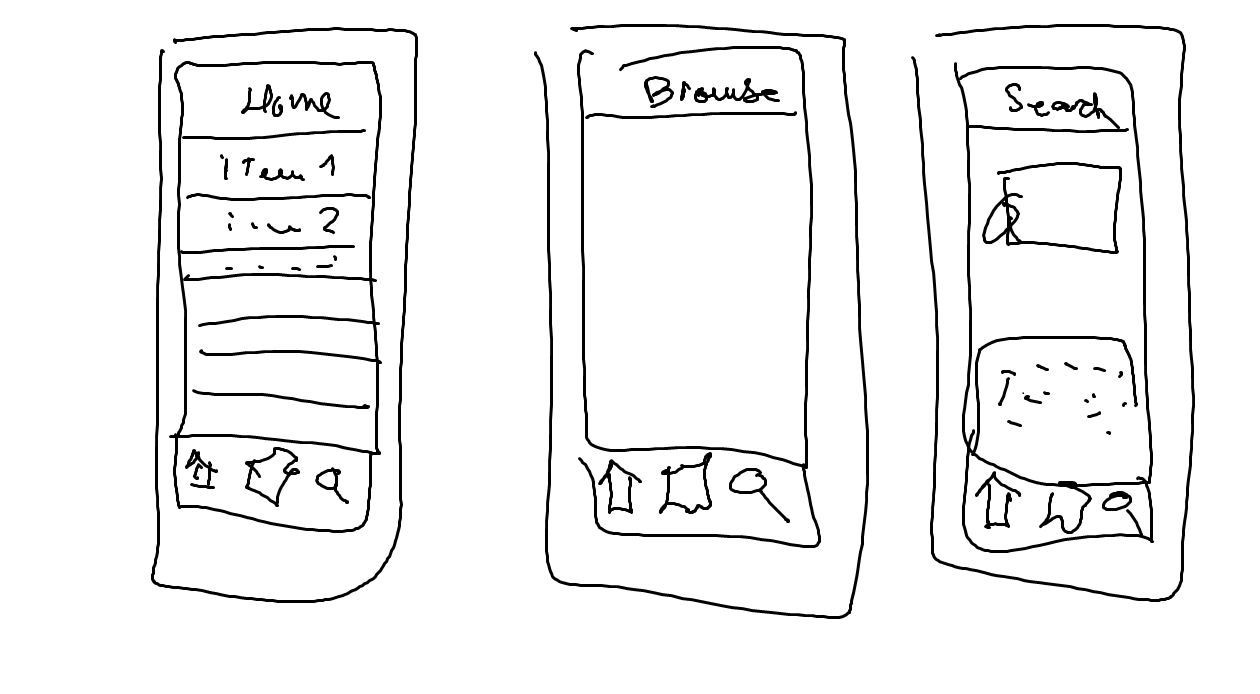 Home
iTem 1
2
Browse
Search